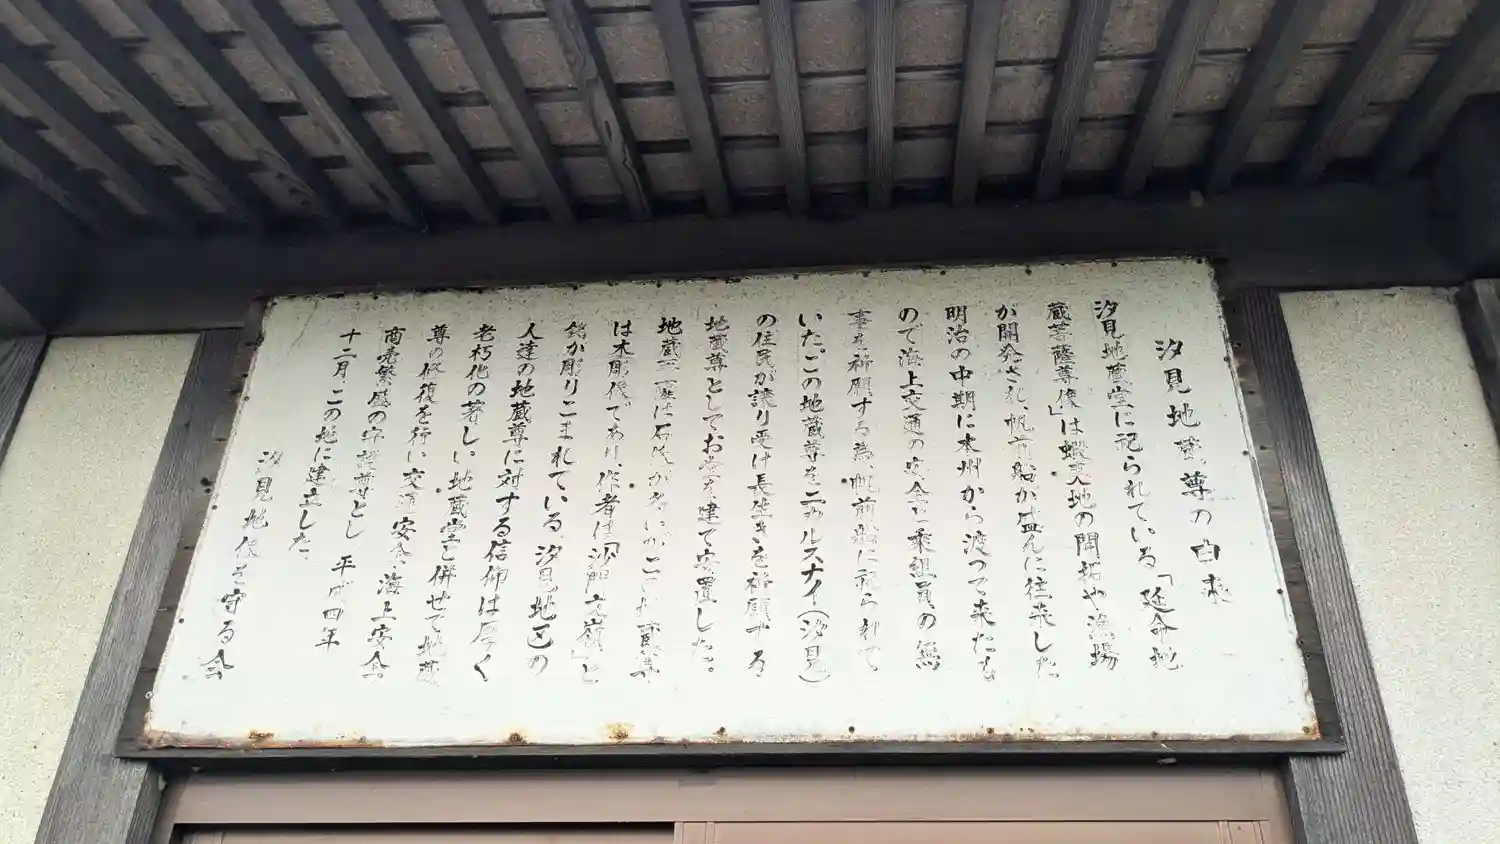 汐見地蔵尊の由来
汐見地蔵堂に祀られている「延命地
蔵菩薩尊像」は蝦夷地の開拓や漁場
が開発され、帆前船が盛んに往来した
明治の中期に本州から渡って来たも
ので海上交通の安全と乗組員の無
事を祈願する為、帆前船に祀られて
いた。この地蔵尊をニカルスナイ(汐見)
の住民が譲り受け長生きを祈願する
地蔵尊としてお堂を建て安置した。
地蔵菩薩は石像が多いがこの地蔵尊
は木彫像であり、作者は「沙門
銘が彫りこまれている。汐見地区の
人達の地蔵尊に対する信仰は厚く
老朽化の著しい地蔵堂と併せて地蔵
尊の修復を行い交通安全、海上安全。
商売繁盛の守護尊とし 平成四年
十二月、この地に建立した。
汐見地代を守る会